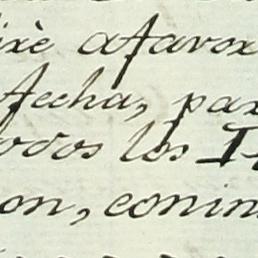 ixè afavox
fecha, pax
odos los I
on, conin